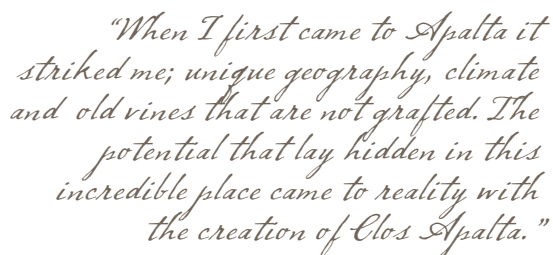 “When I first came to Apalta it
striked me; unique geography, climate
and old vines that are not grafted. The
potential that lay hidden in this
incredible place came to reality with
the creation of Clos Apalta.”